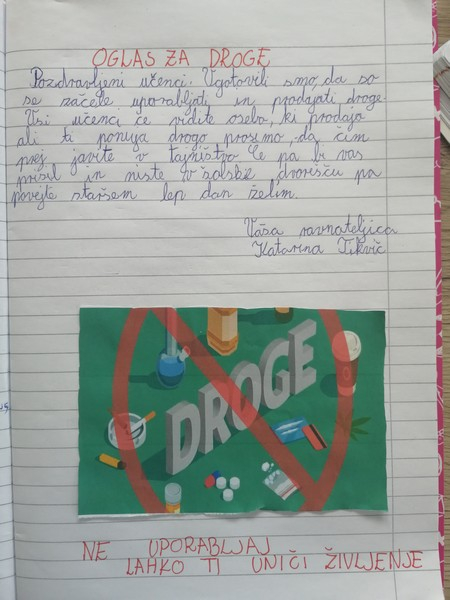 OGLAS ZA DROGE
Pozdravljeni učenci. Ugotovili smo, da so
se začele uporabljati in prodajati droge.
Vsi učenci če vidite osebo, ki prodaja
ali ti ponuja drogo prosimo, da čim
prej javite v tajništvo če pa bi vas
prisil in niste v šolske dvorišču pa
povejte staršem lep dan želim.
Vaša ravnateljica
Katarina
DROGE
NE UPORABLJAJ
LAHKO TI UNIČI ŽIVLJENJE